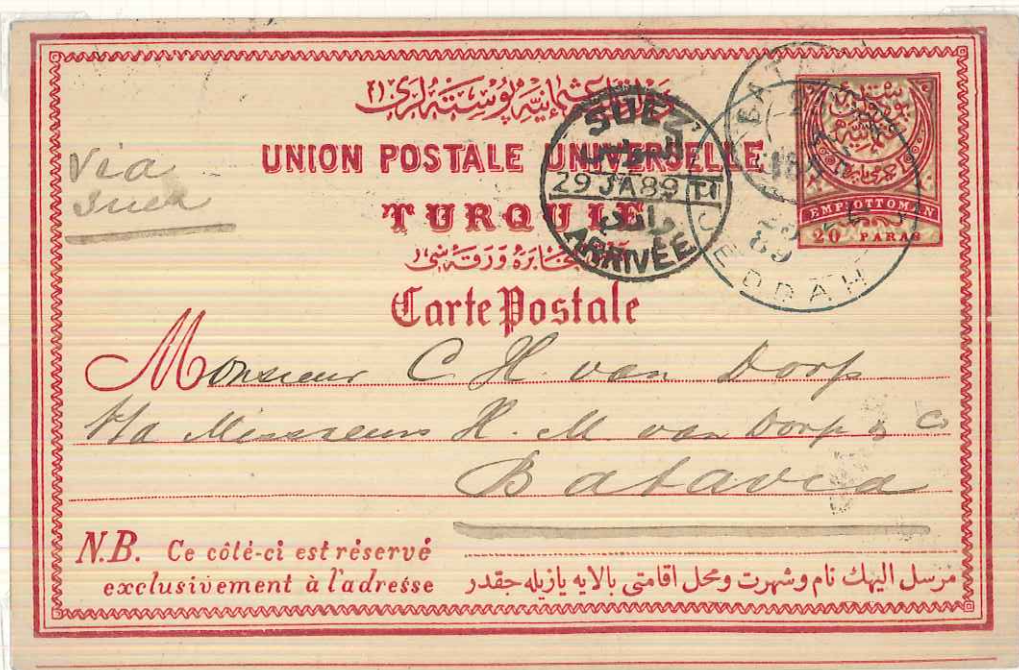 دولت عثمانیه پوسته لری
UNION POSTALE UNIVERSELLE
TURQUIE
مخابره ورقه سی
Carte Postale
via
Suez
SUEZ
29 JA 89 T1
ARRIVÉE
BATA
18
DJEDDAH
89
EMP. OTTOMAN
20 PARAS
Monsieur C. H. van Dorp
Messieurs H. M. van Dorp & Co
Batavia
N.B. Ce côté-ci est réservé
exclusivement à l'adresse
مرسل اليهك نام وشهرت ومحل اقامتی بالایه یازیله جقدر